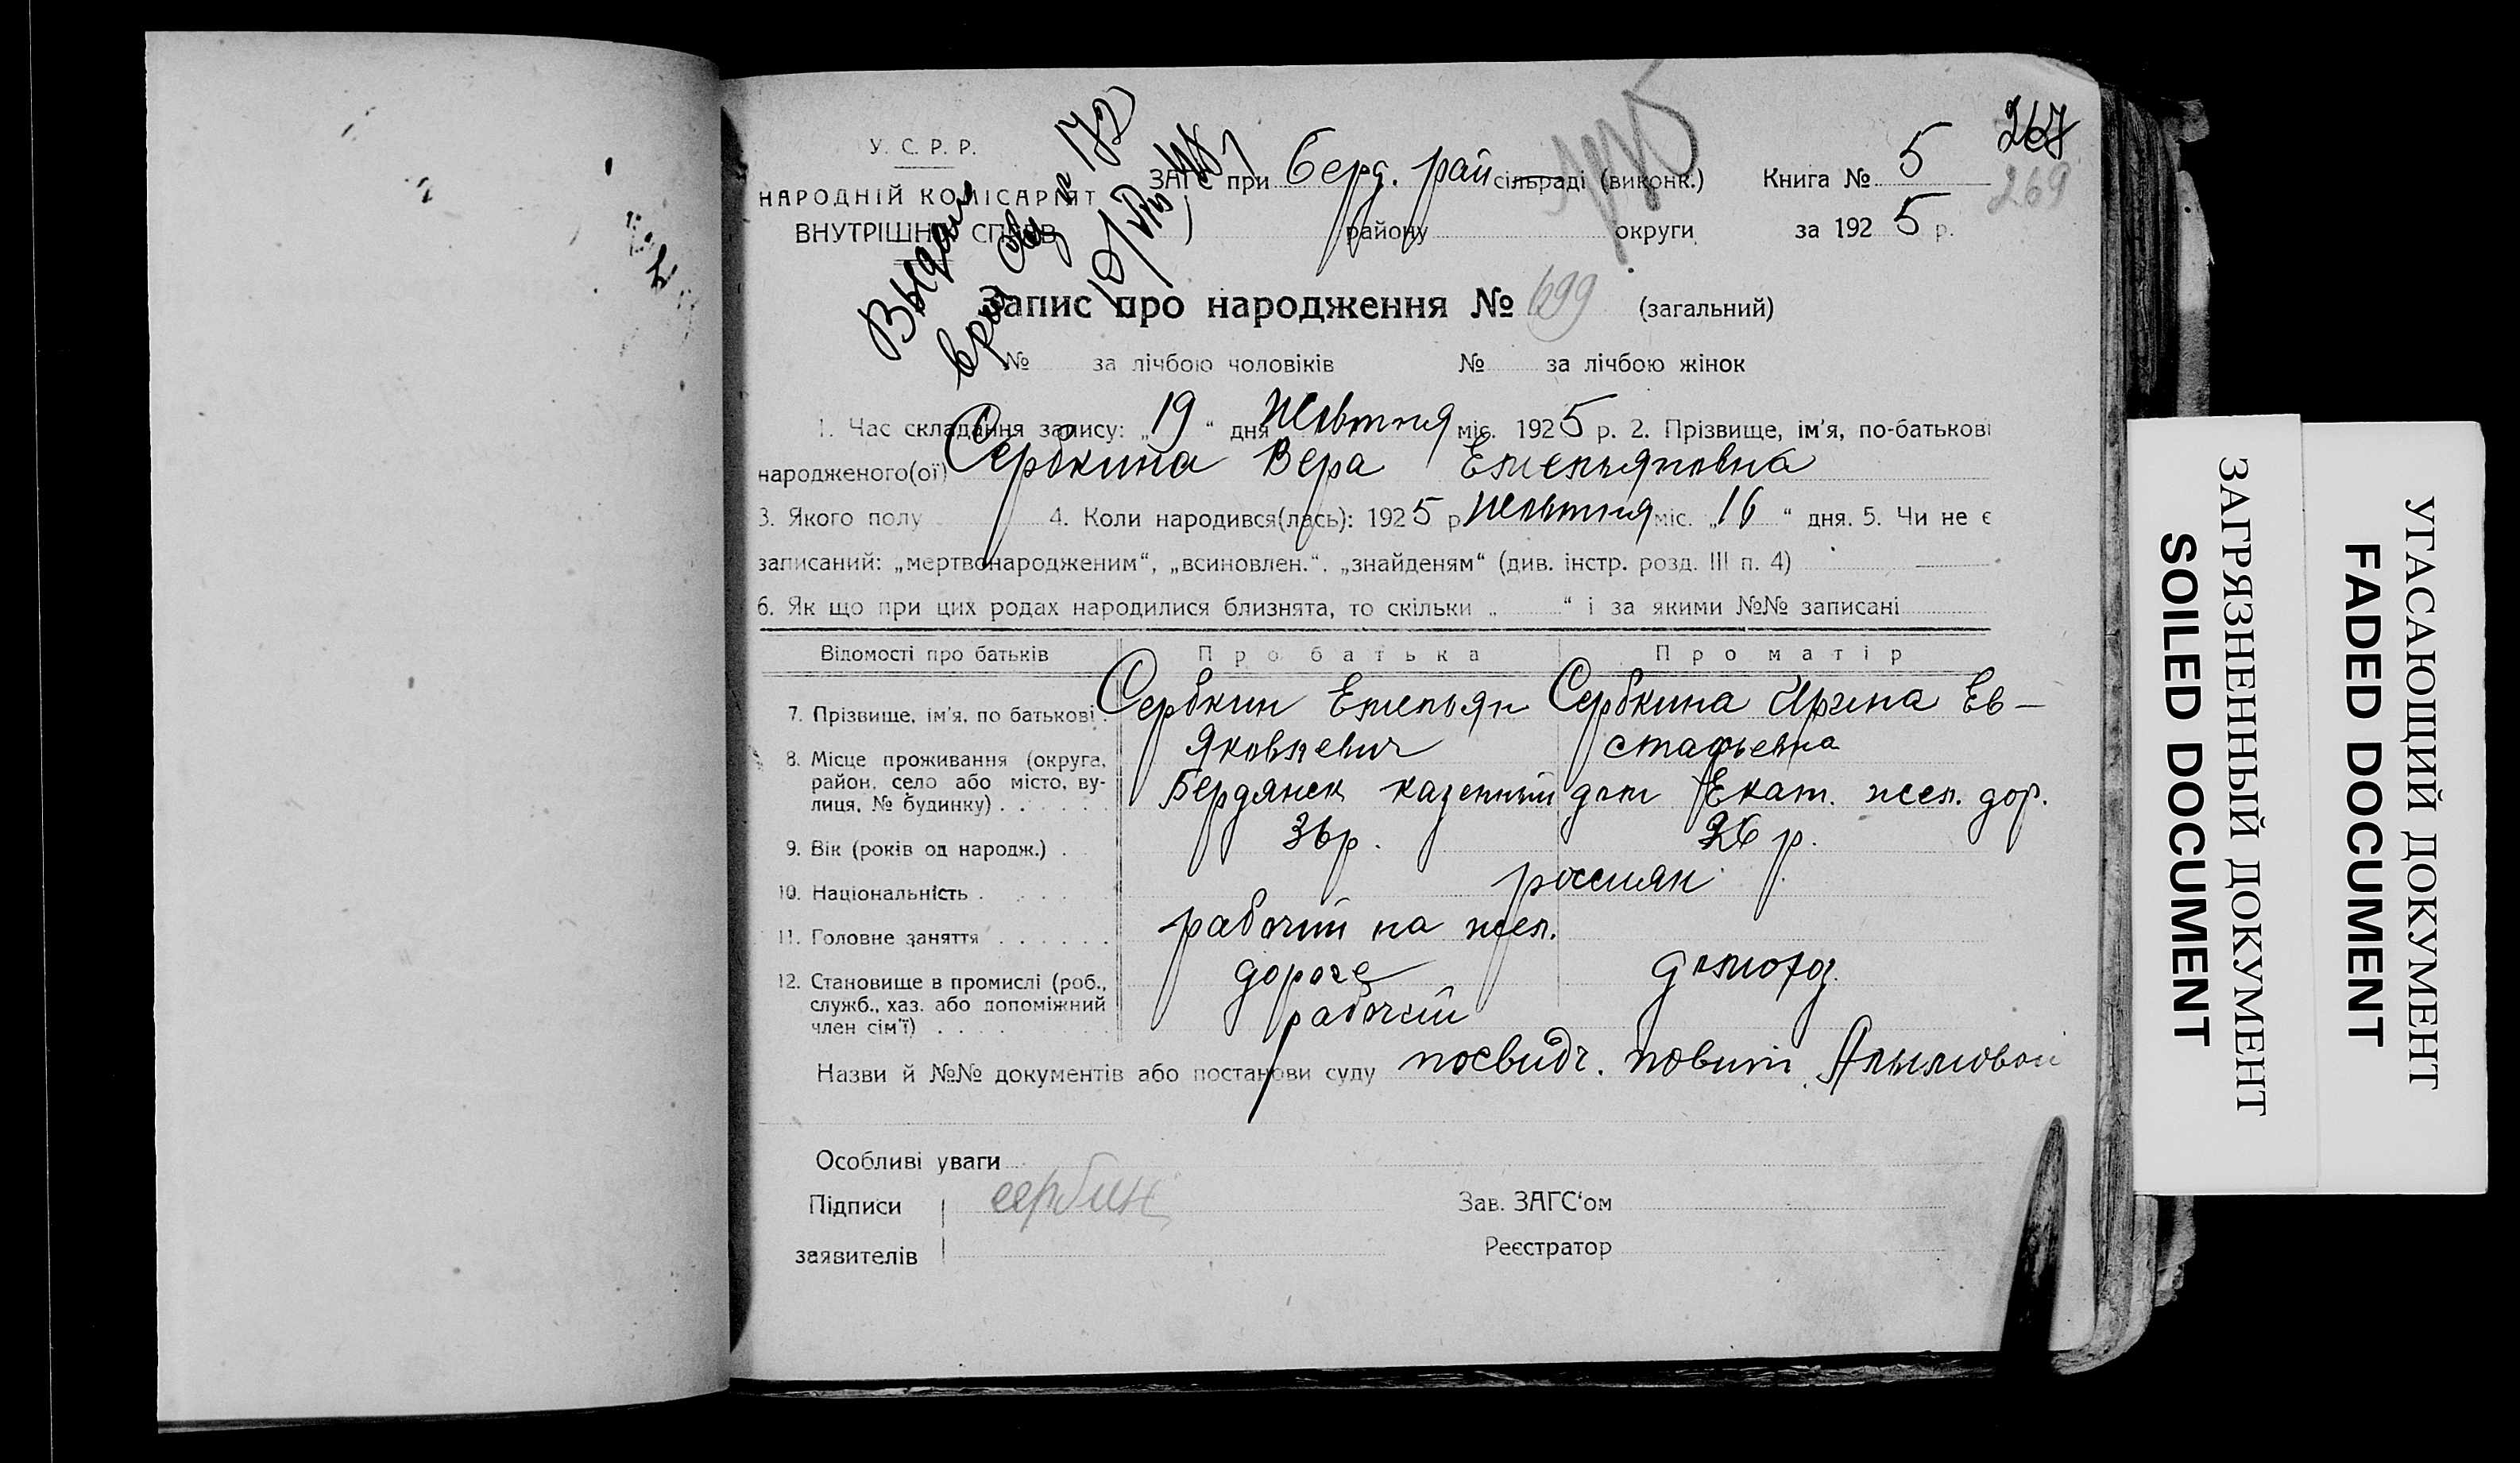 267
269
У. С. Р. Р.
НАРОДНІЙ КОМІСАРІЯТ
ВНУТРІШНІХ СПРАВ
ЗАГС при Берд. рай сільраді (виконк.)
Книга № 5
району округи
за 1925 р.
Выдан
Запис про народження № 699 (загальний)
№ за лічбою чоловіків № за лічбою жінок
1. Час складання запису: „19“ дня Жовтня міс. 1925 р. 2. Прізвище, ім'я, по-батькові
народженого(ої) Сербкина Вера Емельяновна
3. Якого полу 4. Коли народився(лась): 1925 р Жовтня міс. „16“ дня. 5. Чи не є
записаний: „мертвонародженим“, „всиновлен.“, „знайденям“ (див. інстр. розд. III п. 4)
6. Як що при цих родах народилися близнята, то скільки „ “ і за якими №№ записані
Відомості про батьків Про батька Про матір
7. Прізвище, ім'я, по батькові . Сербкин Емельян Яковлевич Сербкина Ирина Ев-
стафьевна
8. Місце проживання (округа,
район, село або місто, ву-
лиця, № будинку) . . . . . Бердянск казенный дом Екат. жел. дор.
9. Вік (років од народж.) . 36 р. 26 р.
10. Національність . . . . россиян
11. Головне заняття . . . . . . рабочий на жел.
дороге домохоз.
12. Становище в промислі (роб.,
служб., хаз. або допоміжний
член сім'ї) . . . . рабочий
Назви й №№ документів або постанови суду посвидч. повит. Алымовой
Особливі уваги
Підписи сербин
заявителів
Зав. ЗАГС'ом
Реєстратор
ЗАГРЯЗНЕННЫЙ ДОКУМЕНТ
SOILED DOCUMENT
УГАСАЮЩИЙ ДОКУМЕНТ
FADED DOCUMENT